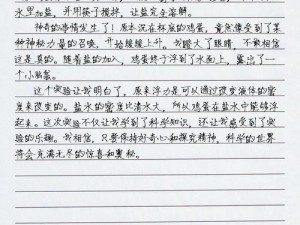 水里加盐，并用筷子搅拌，让盐完全溶解。
神奇的事情发生了！原本沉在杯底的鸡蛋，竟然像受到了某
种神秘力量的召唤，开始缓缓上升。我瞪大了眼睛，不敢相信
这是真的。随着盐的加入，鸡蛋终于浮到了水面上，露出了一
个小脑袋。
这个实验让我明白了，原来浮力是可以通过改变液体的密
度来改变的。盐水的密度比清水大，所以鸡蛋在盐水中能够浮
起来。这次实验不仅让我学到了科学知识，还让我感受到了实
验的乐趣。我相信，只要保持好奇心和探究精神，科学的世界
将会充满无尽的惊喜和奥秘。